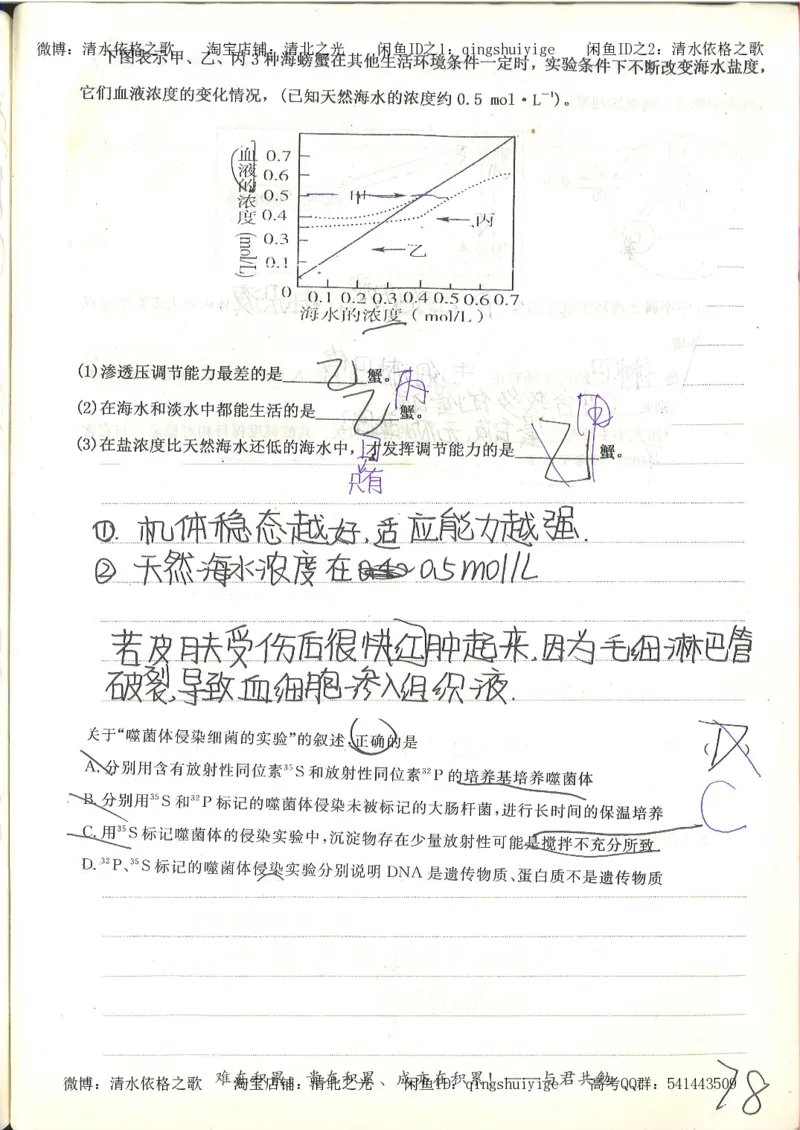 微博：清水依格之歌 淘宝店铺：清北之光 闲鱼ID之1：qingshuiyige 闲鱼ID之2：清水依格之歌
下图表示甲、乙、丙3种海螃蟹在其他生活环境条件一定时，实验条件下不断改变海水盐度，
它们血液浓度的变化情况，(已知天然海水的浓度约 0.5 mol·L⁻¹)。
血液的浓度(mol/L)
0.7
0.6
0.5 甲
0.4 丙
0.3 乙
0.1
0 0.1 0.2 0.3 0.4 0.5 0.6 0.7
海水的浓度(mol/L)
(1)渗透压调节能力最差的是 乙 蟹。
(2)在海水和淡水中都能生活的是 乙 蟹。 丙
(3)在盐浓度比天然海水还低的海水中，才发挥调节能力的是 乙 蟹。 甲
只有
①. 机体稳态越好,适应能力越强.
② 天然海水浓度在 0.5mol/L
若皮肤受伤后很快红肿起来,因为毛细淋巴管
破裂,导致血细胞渗入组织液.
关于“噬菌体侵染细菌的实验”的叙述,正确的是 (D)
A. 分别用含有放射性同位素³⁵S和放射性同位素³²P的培养基培养噬菌体
B. 分别用³⁵S和³²P标记的噬菌体侵染未被标记的大肠杆菌,进行长时间的保温培养
C
C. 用³⁵S标记噬菌体的侵染实验中,沉淀物存在少量放射性可能是搅拌不充分所致
D. ³²P、³⁵S标记的噬菌体侵染实验分别说明DNA是遗传物质、蛋白质不是遗传物质
难在积累、贵在积累、成亦在积累！——与君共勉
微博：清水依格之歌 淘宝店铺：清北之光 闲鱼ID：qingshuiyige 高考QQ群：541443509
78